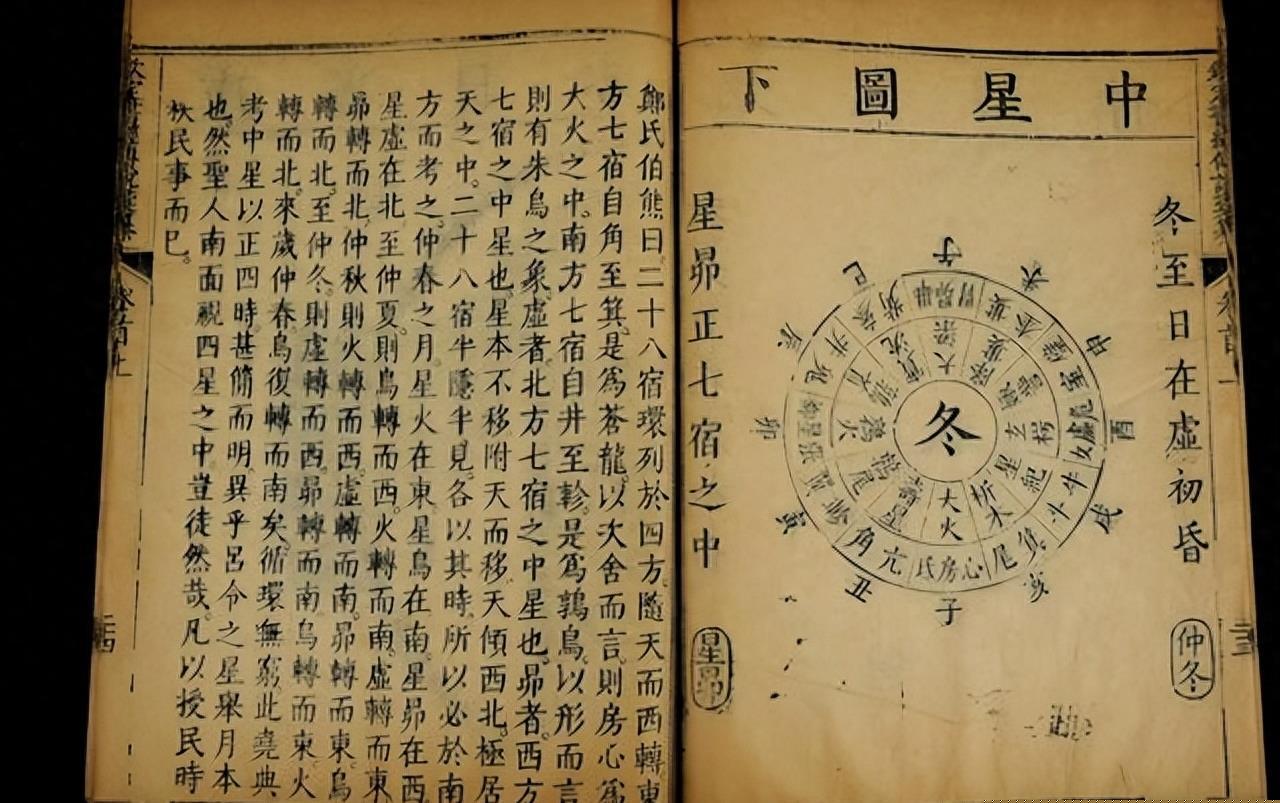 中星圖下
冬至日在虛初昏
仲冬
冬
大火
析木
星紀
玄枵
大梁
壽星
鶉尾
鶉火
氐房心
尾箕
斗牛
女虛危
角亢
井鬼
子
丑
寅
卯
辰
巳
申
酉
戌
亥
星昴正七宿之中
星昴
鄭氏伯熊曰。二十八宿環列於四方。隨天而西轉。東
方七宿自角至箕。是爲蒼龍。以次舍而言。則房心爲
大火之中。南方七宿自井至軫。是爲鶉鳥。以形而言
則有朱鳥之象。虛者。北方七宿之中星也。昴者。西方
七宿之中星也。星本不移。附天而移。天傾西北。極居
天之中。二十八宿半隱半見。各以其時。所以必於南
方而考之。仲春之月。星火在東。星鳥在南。星昴在西
星虛在北。至仲夏。則鳥轉而西。火轉而南。虛轉而東
昴轉而北。仲秋則火轉而西。虛轉而南。昴轉而東。鳥
轉而北。至仲冬。則虛轉而西。昴轉而南。鳥轉而東。火
轉而北。來歲仲春。鳥復轉而南矣。循環無窮。此堯典
考中星以正四時。甚簡而明。異乎呂令之星舉月本
也。然聖人南面視四星之中。豈徒然哉。凡以授民時
秩民事而已。